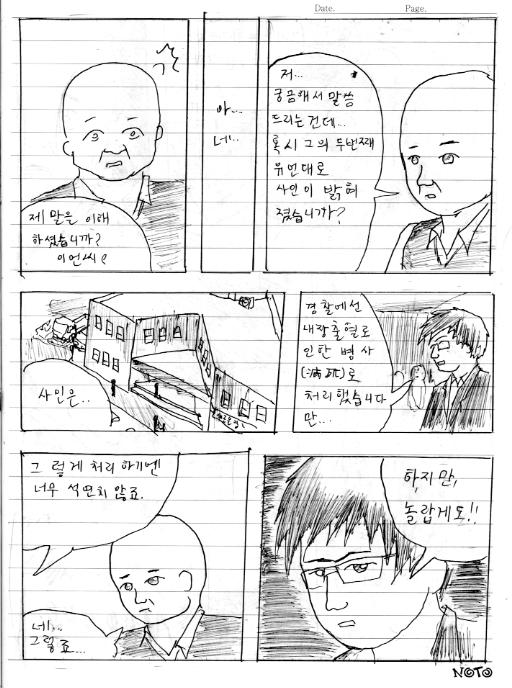 Date.
Page.
제 말을 이해
하셨습니까?
이언씨?
아...
네...
저...
궁금해서 말씀
드리는건데...
혹시 그의 두번째
유언대로
사인이 밝혀
졌습니까?
사인은...
경찰에선
내장출혈로
인한 병사
(病死)로
처리했습니다
만...
그렇게 처리하기엔
너무 석연치 않죠.
네...
그렇죠...
하지만,
놀랍게도!!
NOTO